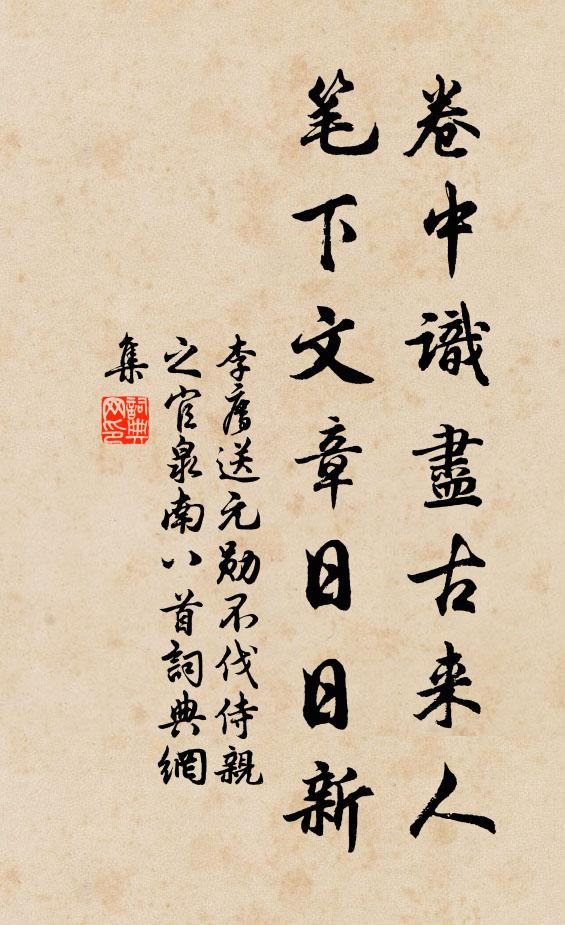 卷中識盡古来人
笔下文章日日新
李膺送元勛不伐侍親
之官泉南八首詞典網
集
詞典
网印